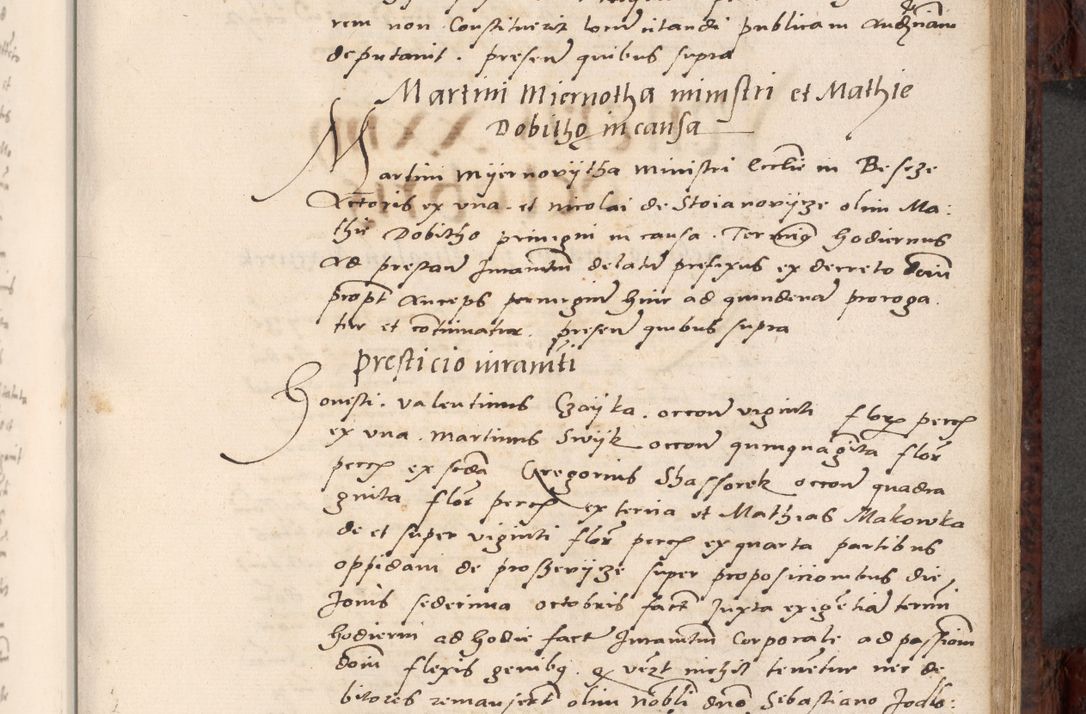 rem non Constituerit locum citandi publicam Audn̄iam
deputavit. presen̄ quibus supra
Martini Miernotha ministri et Mathie
Dobitho in causa
Martini Myernovytha Ministri Eccl̄ie in Besze
Actoris ex una. et Nicolai de Stoianovycze olim Ma:
thie Dobitho in causa. Terming hodiernus
ad prestan̄ Juramentū delatū prefixus ex decreto dom̄
propt Anceps hinc ad quindenā proroga
tur et cōtinuatur. presen̄ quibus supra
Presticio iuramti
Honesti. Valentinus Czayka. occon̄ viginti flor̄ pecc
ex una. Martinus Swyk occon̄ quinquagīta flor̄
pecc ex scdā Gregorius Shassorek occon̄ quadra
ginta flor̄ pecc ex tercia et Mathias Makowka
de et super viginti flor̄ pecc ex quarta partibus
oppidani de proszevycze super propositionibus die
Jovis sedecima octobris fact̄ Juxta exigētiā termi
hodierni ad hodie factū Juramentū Corporale ad passionē
dom̄ flexis genibq. q nichil tenētur nec de
bitores remanserūt olim Nobli dno Sebastiano Jodlo: